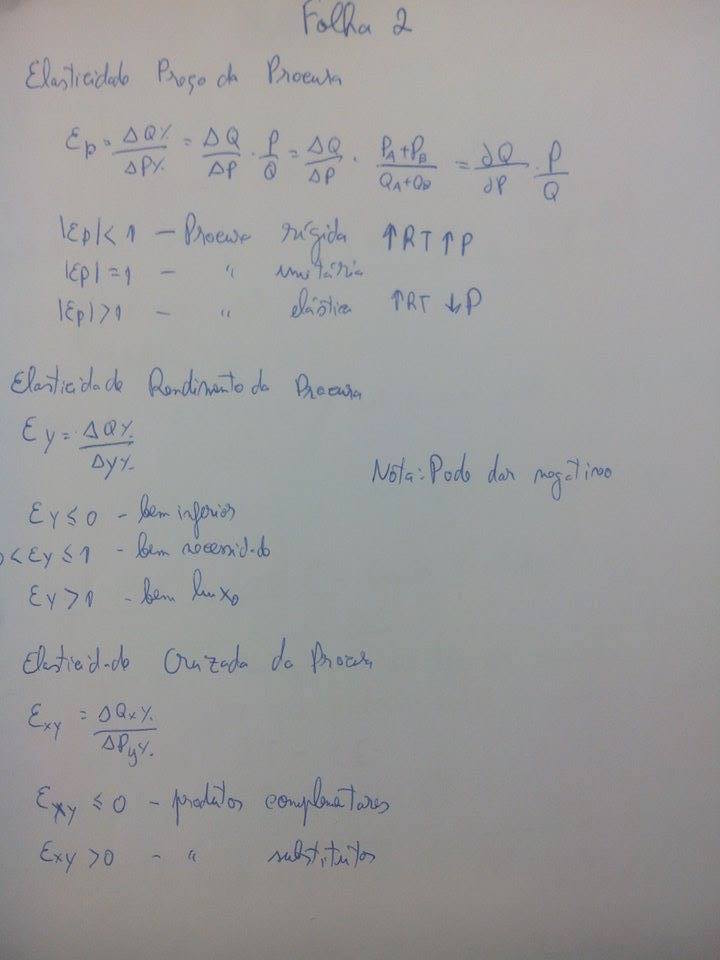 Folha 2
Elasticidade Preço da Procura
Ep = ΔQ% / ΔP% = ΔQ/ΔP · P/Q = ΔQ/ΔP · (PA+PB)/(QA+QB) = ∂Q/∂P · P/Q
|Ep| < 1 – Procura rígida ↑RT ↑P
|Ep| = 1 – " unitária
|Ep| > 1 – " elástica ↑RT ↓P
Elasticidade Rendimento da Procura
Ey = ΔQ% / Δy%
Nota: Pode dar negativo
Ey ≤ 0 - bem inferior
0 < Ey ≤ 1 - bem necessidade
Ey > 1 - bem luxo
Elasticidade Cruzada da Procura
Exy = ΔQx% / ΔPy%
Exy ≤ 0 – produtos complematares
Exy > 0 – " substitutos